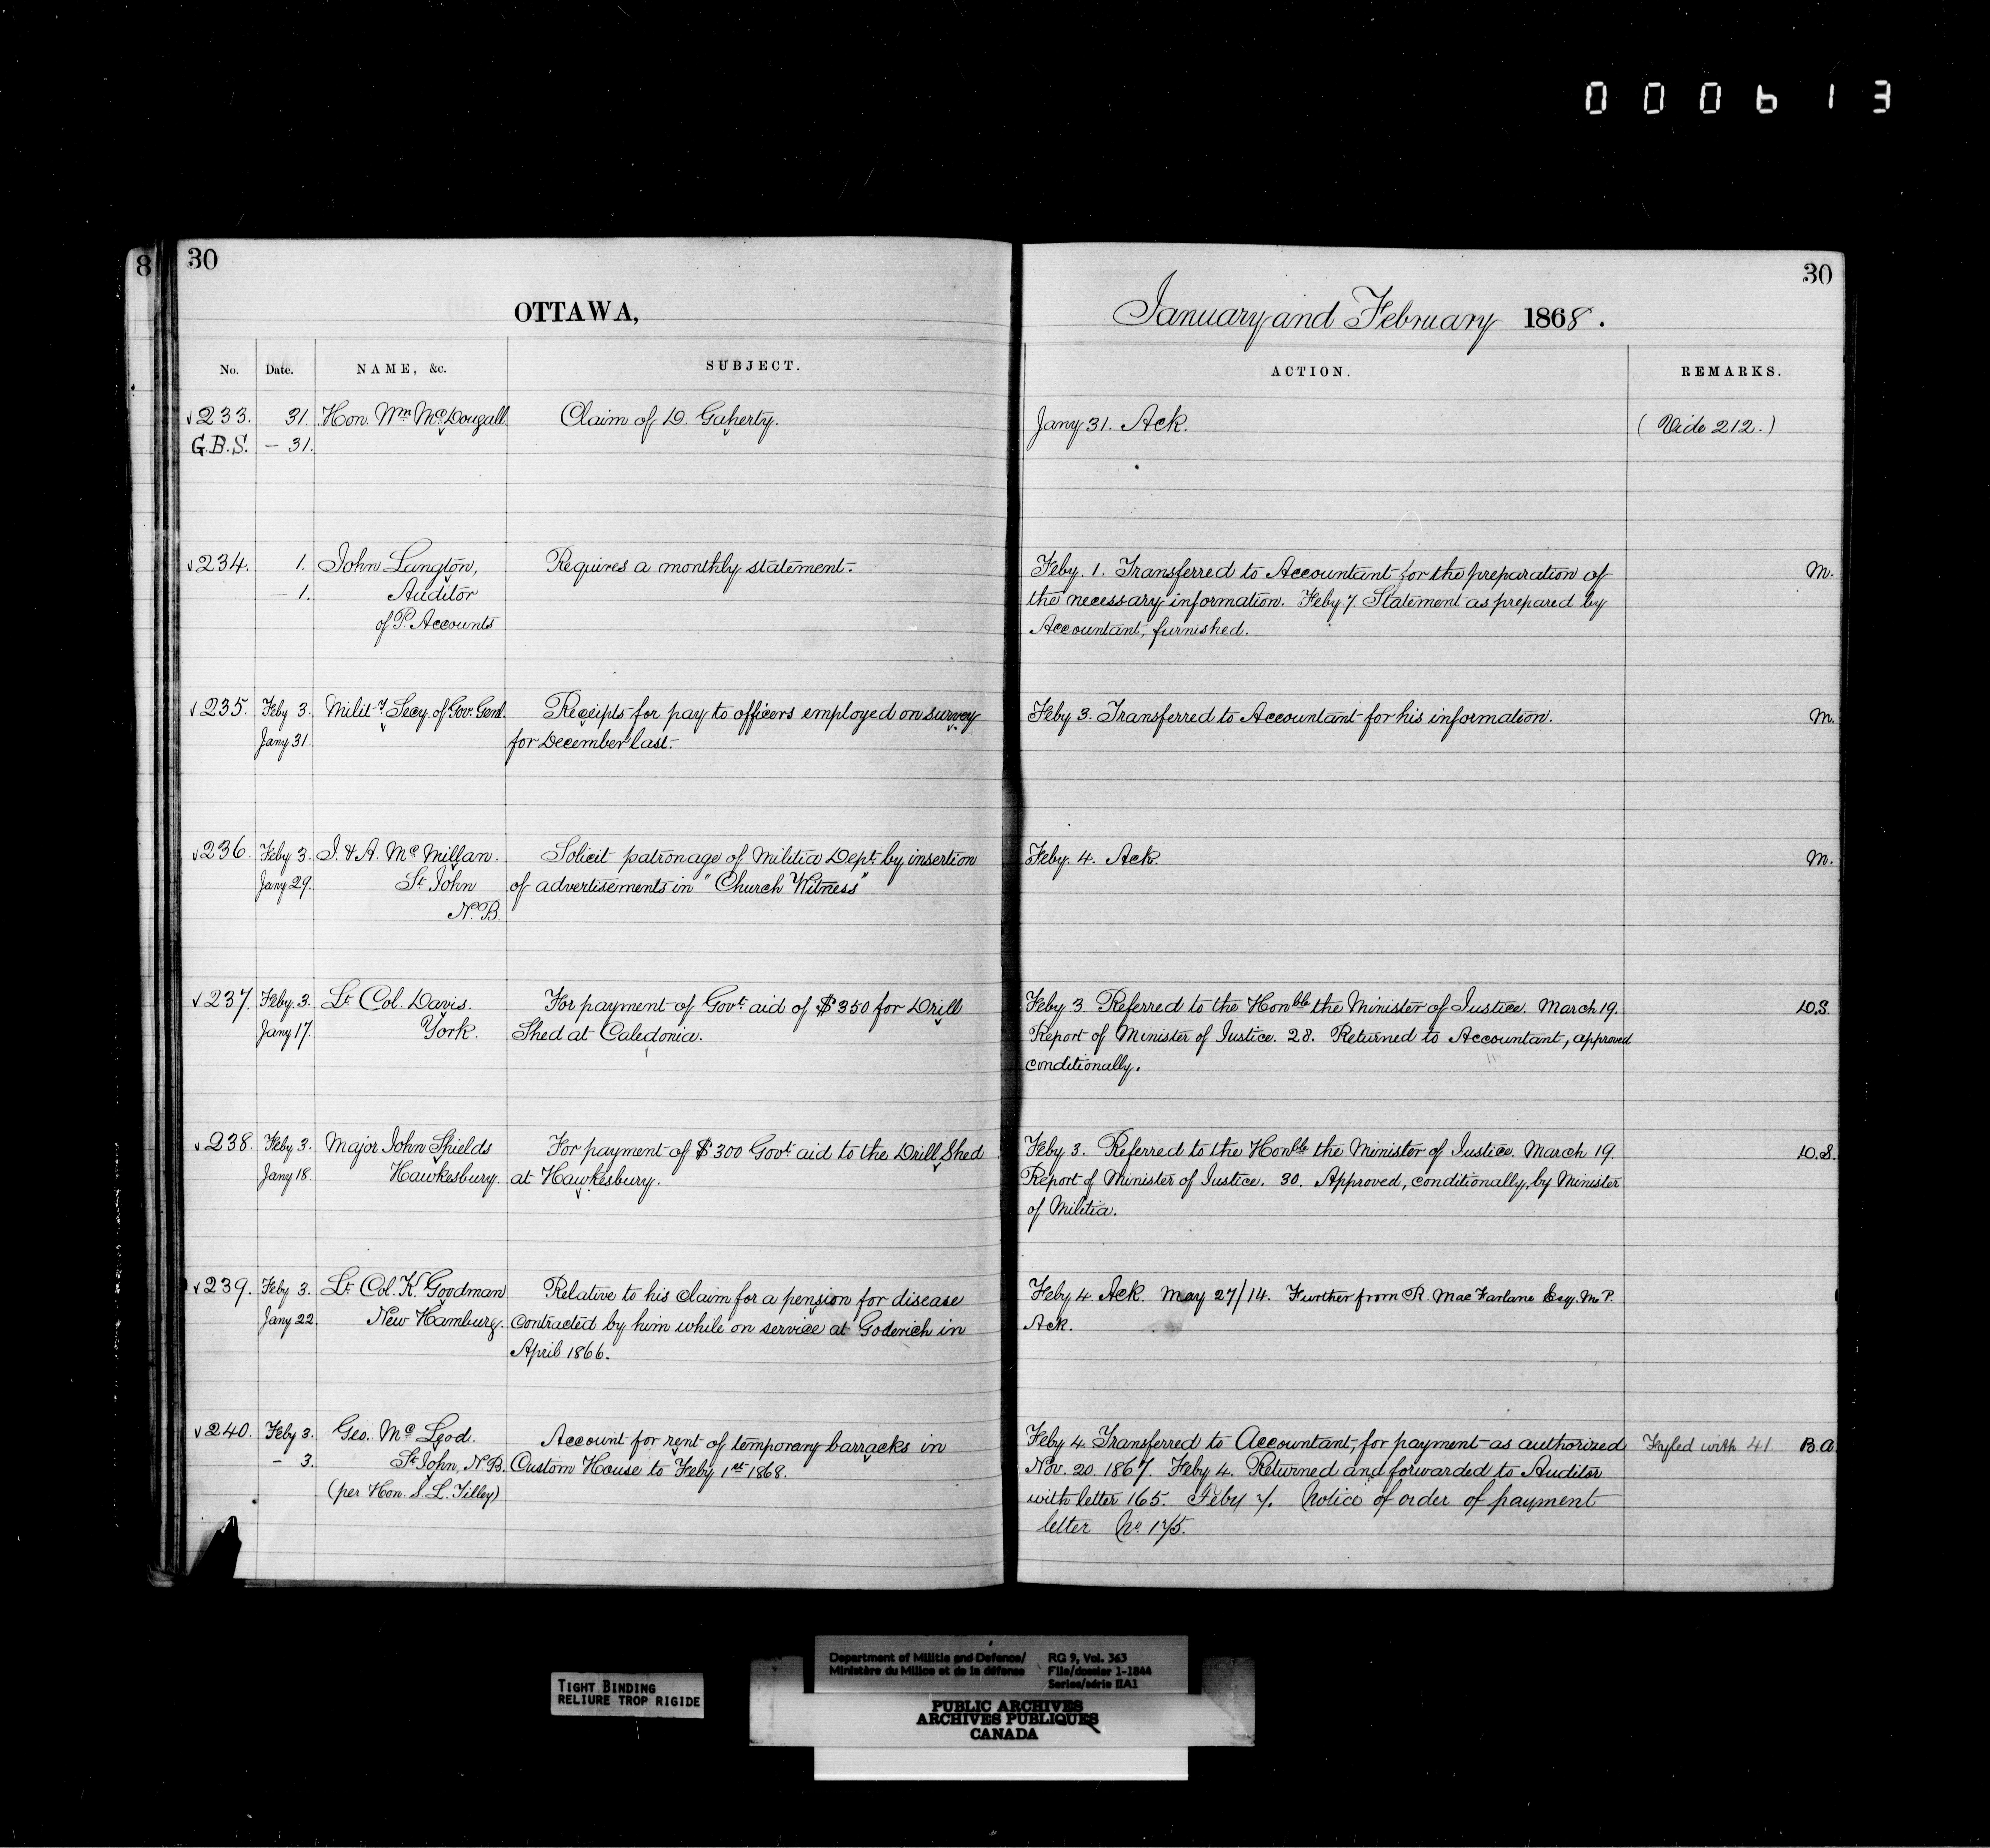 000613
8
30
30
OTTAWA,
January and February 1868.
No. Date. NAME, &c. SUBJECT. ACTION. REMARKS.
233. 31. Hon. Wm McDougall Claim of D. Gaherty. Jany 31. Ack. (Vide 212.)
G.B.S. – 31.
234. 1. John Langton, Requires a monthly statement. Feby. 1. Transferred to Accountant for the preparation of M.
– 1. Auditor the necessary information. Feby 7. Statement as prepared by
of P. Accounts Accountant, furnished.
235. Feby 3. Milit-y Secy. of Gov. Genl. Receipts for pay to officers employed on survey Feby 3. Transferred to Accountant for his information. M.
Jany 31. for December last.
236. Feby 3. J. & A. McMillan. Solicit patronage of Militia Dept. by insertion Feby. 4. Ack. M.
Jany 29. St John of advertisements in "Church Witness"
N.B.
237. Feby. 3. Lt Col. Davis. For payment of Govt. aid of $350 for Drill Feby 3 Referred to the Honble the Minister of Justice. March 19. D.S.
Jany 17. York. Shed at Caledonia. Report of Minister of Justice. 28. Returned to Accountant, approved
conditionally.
238. Feby 3. Major John Shields For payment of $300 Govt. aid to the Drill Shed Feby 3. Referred to the Honble the Minister of Justice. March 19. D.S.
Jany 18. Hawkesbury. at Hawkesbury. Report of Minister of Justice. 30. Approved, conditionally, by Minister
of Militia.
239. Feby 3. Lt. Col. K. Goodman Relative to his claim for a pension for disease Feby 4. Ack. May 27/14. Further from R MacFarlane Esq. M.P.
Jany 22. New Hamburg. contracted by him while on service at Goderich in Ack.
April 1866.
240. Feby 3. Geo. McLeod. Account for rent of temporary barracks in Feby 4. Transferred to Accountant, for payment as authorized Fyled with 41 B.A.
– 3. St John, N.B. Custom House to Feby 1st 1868. Nov. 20. 1867. Feby 4. Returned and forwarded to Auditor
(per Hon. S. L. Tilley) with letter 165. Feby 7. Notice of order of payment
letter No. 175.
TIGHT BINDING
RELIURE TROP RIGIDE
Department of Militia and Defence/ RG 9, Vol. 363
Ministère du Milice et de la défense File/dossier 1-1844
Series/série IIA1
PUBLIC ARCHIVES
ARCHIVES PUBLIQUES
CANADA